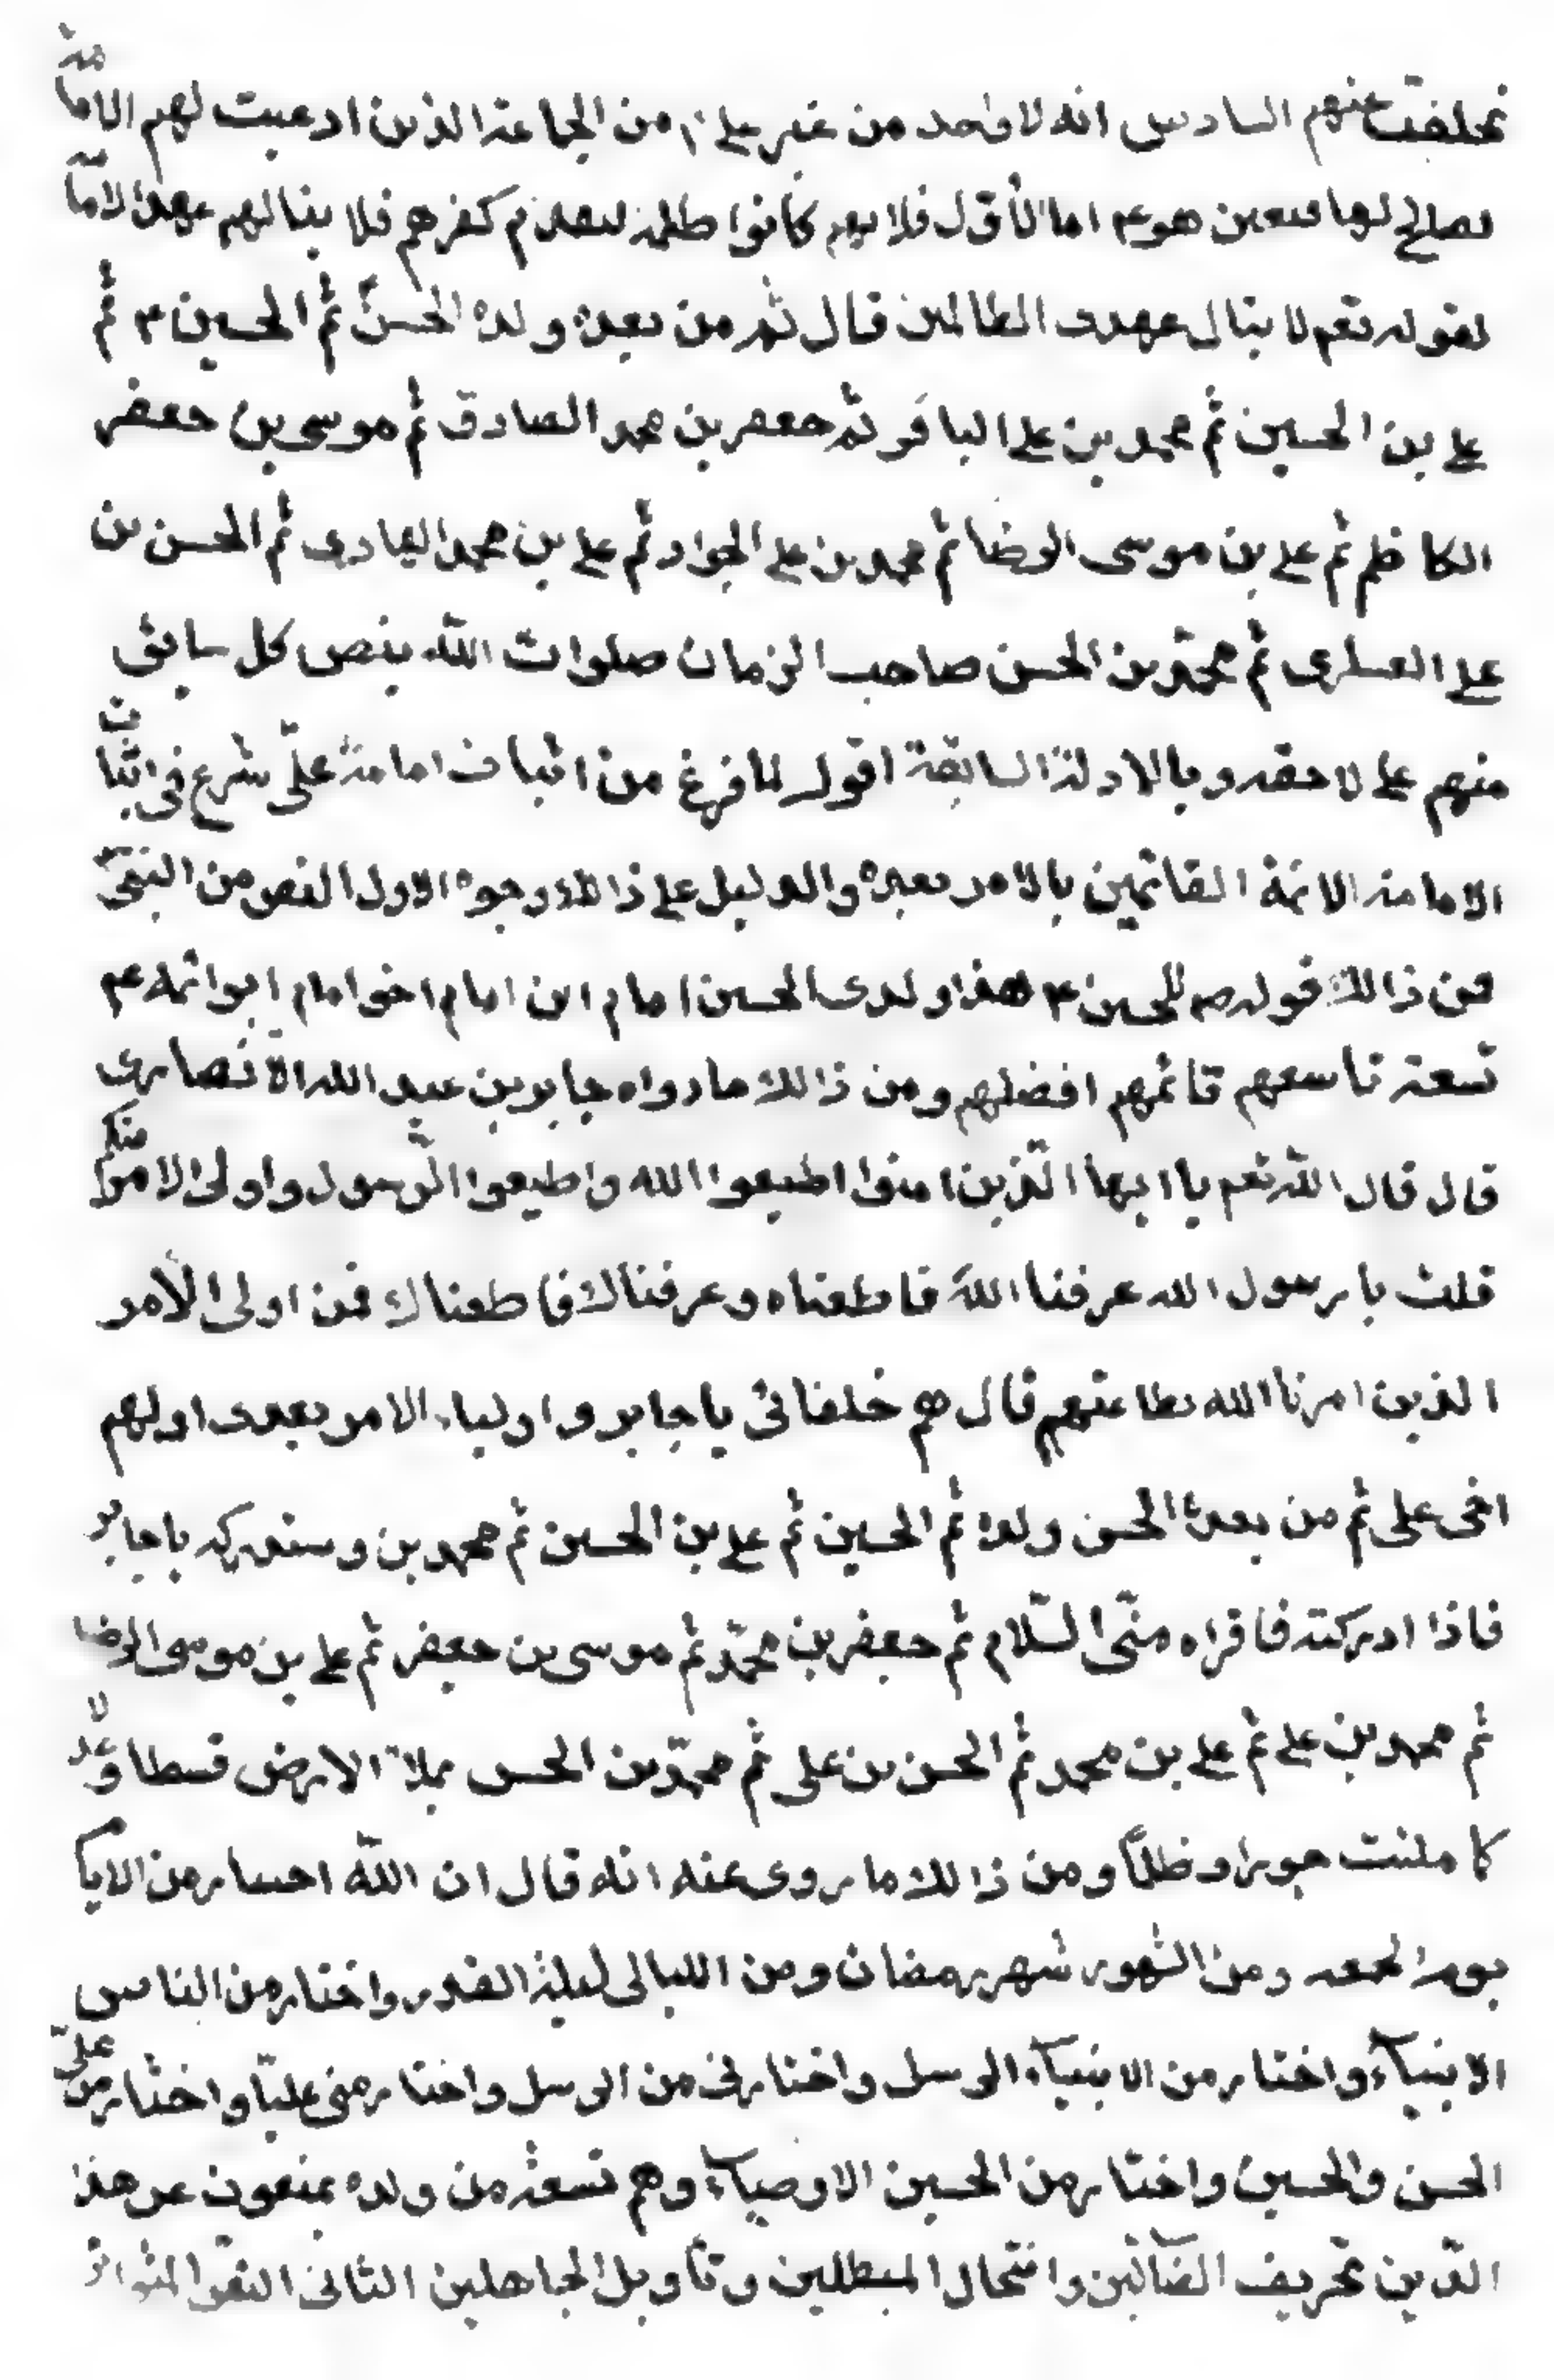 تخلفت عنهم السادس انه لا واحد من غير علي ٤ من الجماعة الذين ادعيت لهم الامامة
بصالح لها فتعين هو عم اما الأول فلانهم كانوا ظلمة لتقدم كفرهم فلا ينالهم عهد الامامة
لقوله تعم لا ينال عهدى الظالمين قال ثم من بعده ولده الحسنّ ثم الحسين ٤ ثم
علي بن الحسين ثم محمد بن علي الباقر ثم جعفر بن محمد الصادق ثم موسى بن جعفر
الكاظم ثم علي بن موسى الرضا ثم محمد بن علي الجواد ثم علي بن محمد الهادى ثم الحسن بن
علي العسكرى ثم محمّد بن الحسن صاحب الزمان صلوات اللّه بنص كل سابق
منهم علي لاحقه وبالادلة السابقة اقول لما فرغ من اثبات امامة علىّ شرع في اثبات
الامامة الائمة القائمين بالامر بعده والدليل علي ذالك وجوه الاول النص من النبيّ
فمن ذالك قوله ص للحسين ٤ هذا ولدى الحسين امام ابن امام اخو امام ابو ائمة عم
تسعة تاسعهم قائمهم افضلهم ومن ذالك ما رواه جابر بن عبد الله الانصارى
قال قال اللّه تعم يا ايها الّذين امنوا اطيعوا الله واطيعوا الّرسول واولى الامر منكم
قلت يا رسول الله عرفنا اللّه فاطعناه وعرفناك فاطعناك فمن اولى الأمر
الذين امرنا الله بطاعتهم قال هم خلفائى يا جابر واولياء الامر بعدى اولهم
اخى على ثم من بعده الحسن ولده ثم الحسين ثم علي بن الحسين ثم محمد بن وستدركه يا جابر
فاذا ادركته فاقراه منّى السّلام ثم جعفر بن محمّد ثم موسى بن جعفر ثم علي بن موسى الرضا
ثم محمد بن علي ثم علي بن محمد ثم الحسن بن على ثم محمّد بن الحسن يملأ الارض قسطا وعدلا
كما ملئت جورا وظلمًا ومن ذالك ما روى عنه انه قال ان اللّه اختار من الايام
يوم الجمعه ومن الشهور شهر رمضان ومن الليالى ليلة القدر واختار من الناس
الانبياء واختار من الانبياء الرسل واختارنى من الرسل واختار منى عليّا واختار من علىّ
الحسن والحسين واختار من الحسين الاوصياء وهم تسعة من ولده ينفون عن هذا
الدّين تحريف الضآلّين وانتحال المبطلين وتأويل الجاهلين الثانى النقل المتواتر